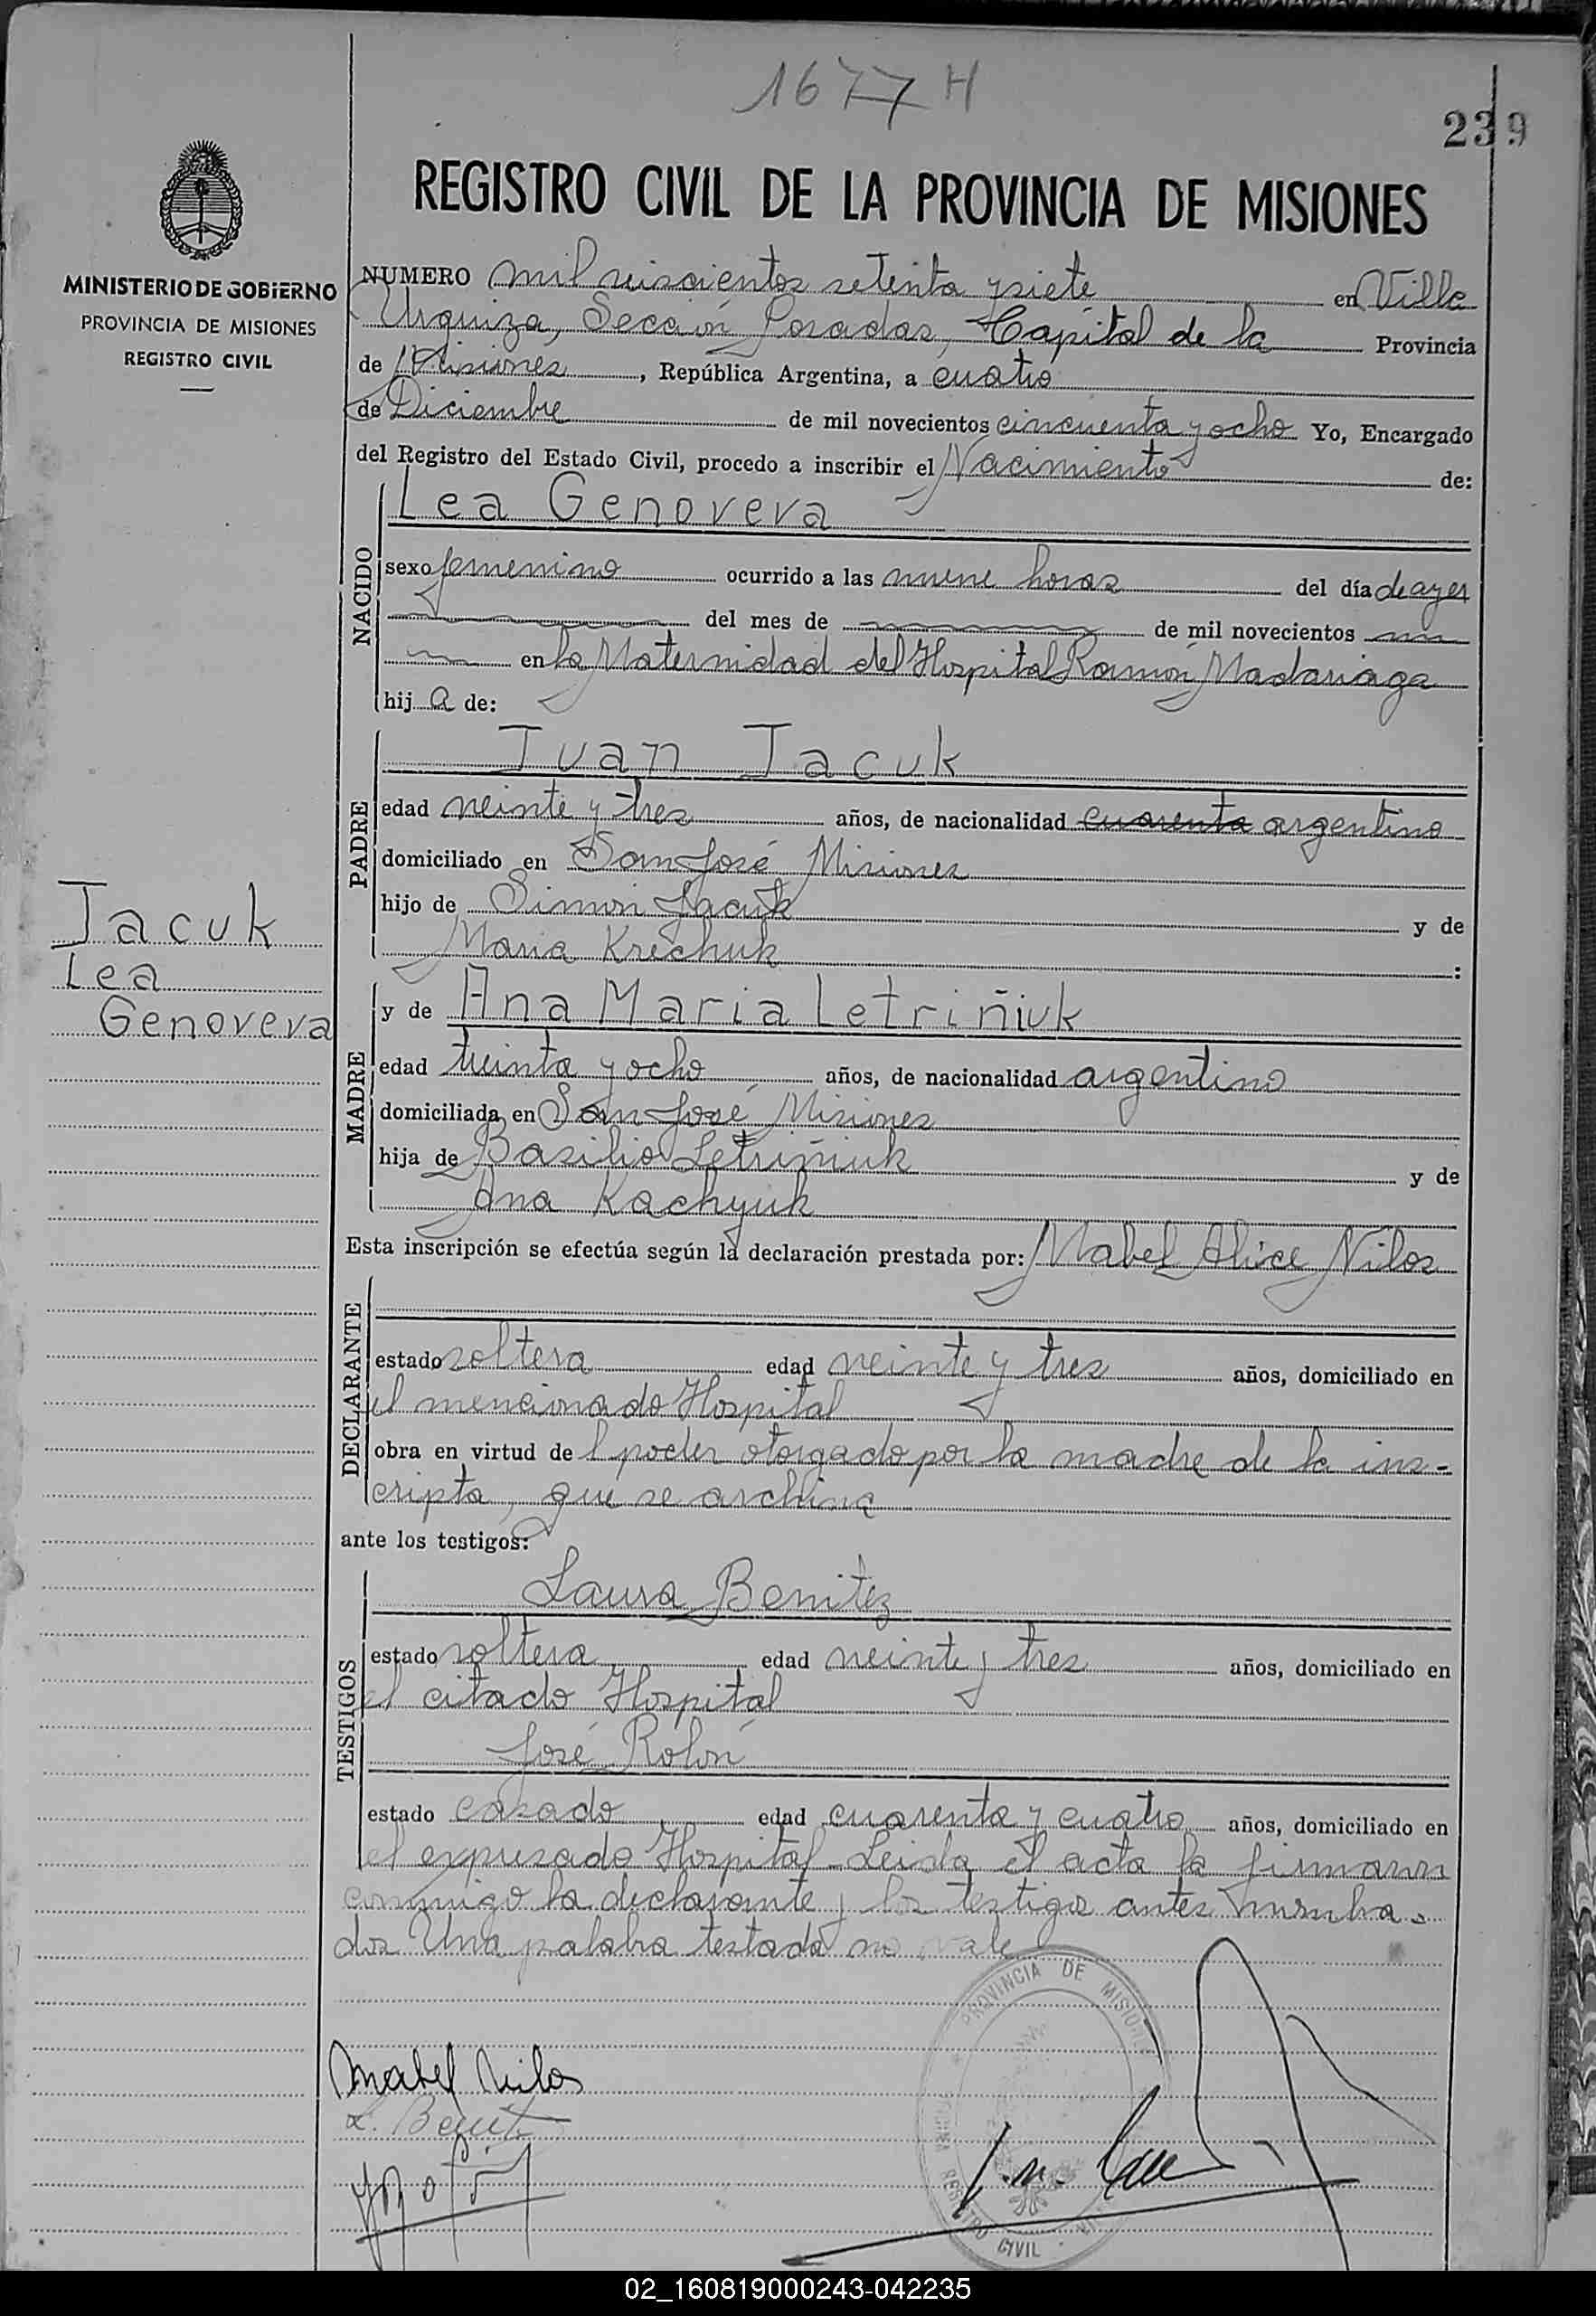 1677 H
239
REGISTRO CIVIL DE LA PROVINCIA DE MISIONES
MINISTERIO DE GOBIERNO
PROVINCIA DE MISIONES
REGISTRO CIVIL
NUMERO mil seiscientos setenta y siete en Villa
Urquiza, Sección Posadas, Capital de la Provincia
de Misiones, República Argentina, a cuatro
de Diciembre de mil novecientos cincuenta y ocho Yo, Encargado
del Registro del Estado Civil, procedo a inscribir el Nacimiento de:
NACIDO
Lea Genoveva
sexo femenino ocurrido a las nueve horas del día de ayer
del mes de de mil novecientos
en la Maternidad del Hospital Ramón Madariaga
hij a de:
PADRE
Juan Jacuk
edad veinte y tres años, de nacionalidad cuarenta argentino
domiciliado en San José Misiones
hijo de Simon Jacuk y de
Maria Krechuk :
Jacuk
Lea
Genoveva
MADRE
y de Ana Maria Letriñiuk
edad treinta y ocho años, de nacionalidad argentino
domiciliada en San José Misiones
hija de Basilio Letriñiuk y de
Ana Kachyuk
Esta inscripción se efectúa según la declaración prestada por: Mabel Alice Nilos
DECLARANTE
estado soltera edad veinte y tres años, domiciliado en
el mencionado Hospital
obra en virtud de l poder otorgado por la madre de la ins-
cripta, que se archiva
ante los testigos:
TESTIGOS
Laura Benitez
estado soltera edad veinte y tres años, domiciliado en
el citado Hospital
José Rolón
estado casado edad cuarenta y cuatro años, domiciliado en
el expresado Hospital Leida el acta la firmaron
conmigo la declarante y los testigos antes nombra-
dos Una palabra testada no vale
PROVINCIA DE MISIONES
REGISTRO CIVIL
Mabel Nilos
L. Benitez
02_160819000243-042235